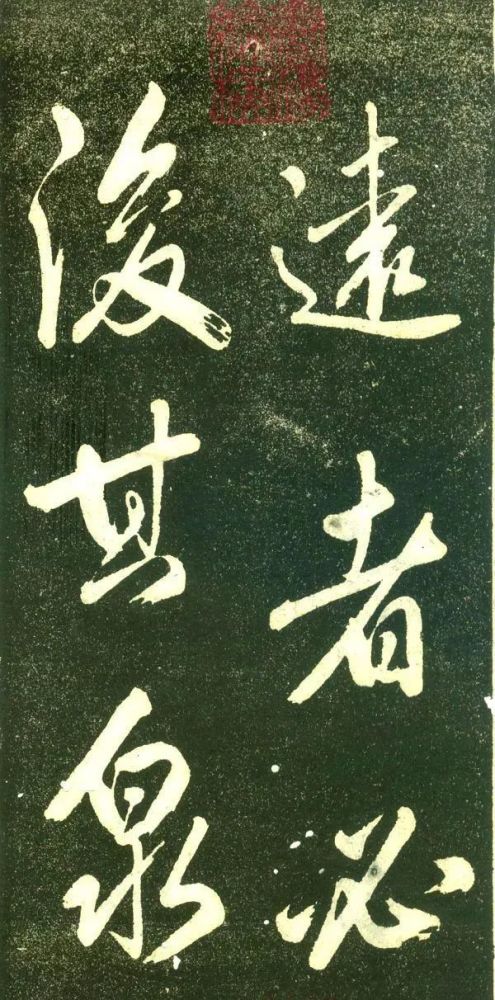 遠者必
浚其泉